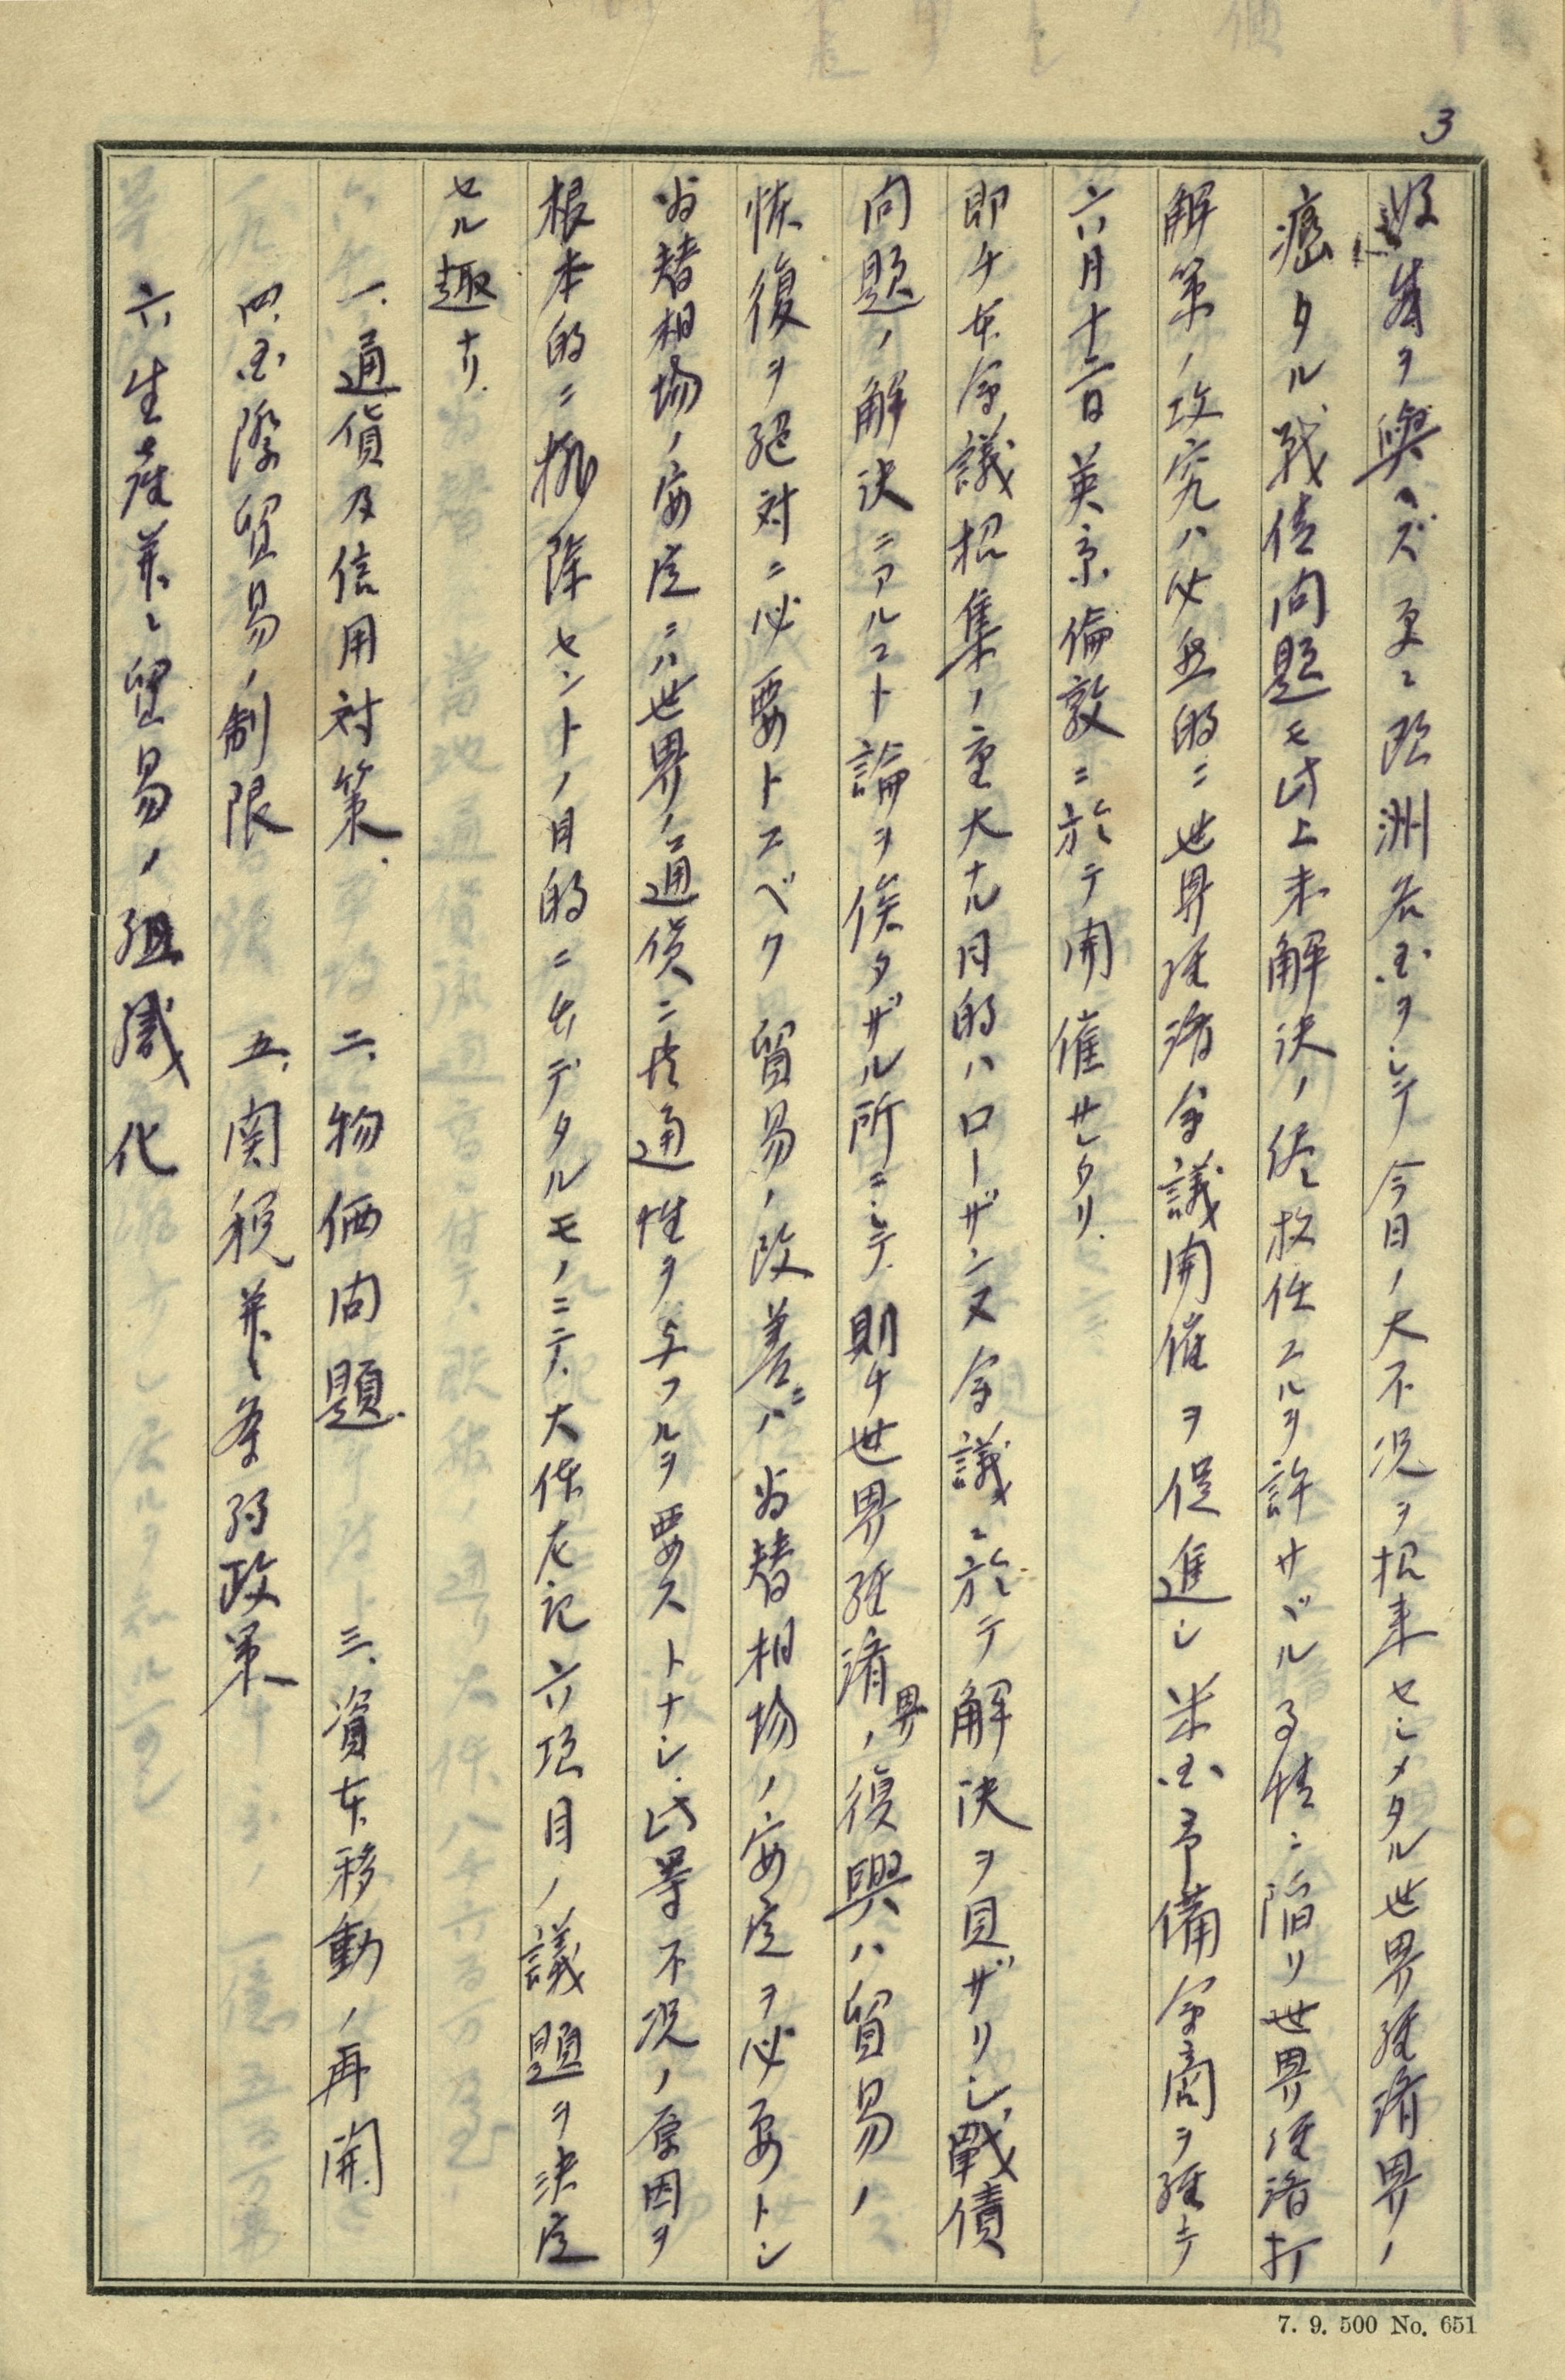 3
妨害ヲ與ヘズ更ニ欧洲各国ヲシテ今日ノ大不況ヲ招来セシメタル世界経済界ノ
癌タル戦債問題モ此上未解決ノ侭放任スルヲ許サヾル事情ニ陥リ世界経済打
解策ノ攻究ハ必然的ニ世界経済会議開催ヲ促進シ米国予備会商ヲ経テ
六月十二日英京倫敦ニ於テ開催サレタリ.
即チ本会議招集ノ重大ナル目的ハローザンヌ会議ニ於テ解決ヲ見ザリシ戰債
問題ノ解決ニアルコト論ヲ俟タザル所ニシテ則チ世界経済界ノ復興ハ貿易ノ
恢復ヲ絶対ニ必要トスベク貿易ノ改善ニハ為替相場ノ安定ヲ必要トシ
為替相場ノ安定ニハ世界ノ通貨ニ共通性ヲ与フルヲ要ストナシ此等不況ノ原因ヲ
根本的ニ排除セントノ目的ニ出デタルモノニテ大体左記六項目ノ議題ヲ決定
セル趣ナリ.
一、通貨及信用対策. 二、物価問題. 三、資本移動ノ再開
四、国際貿易ノ制限 五、関税並ニ条約政策
六、生産並ニ貿易ノ組織化
7. 9. 500 No. 651